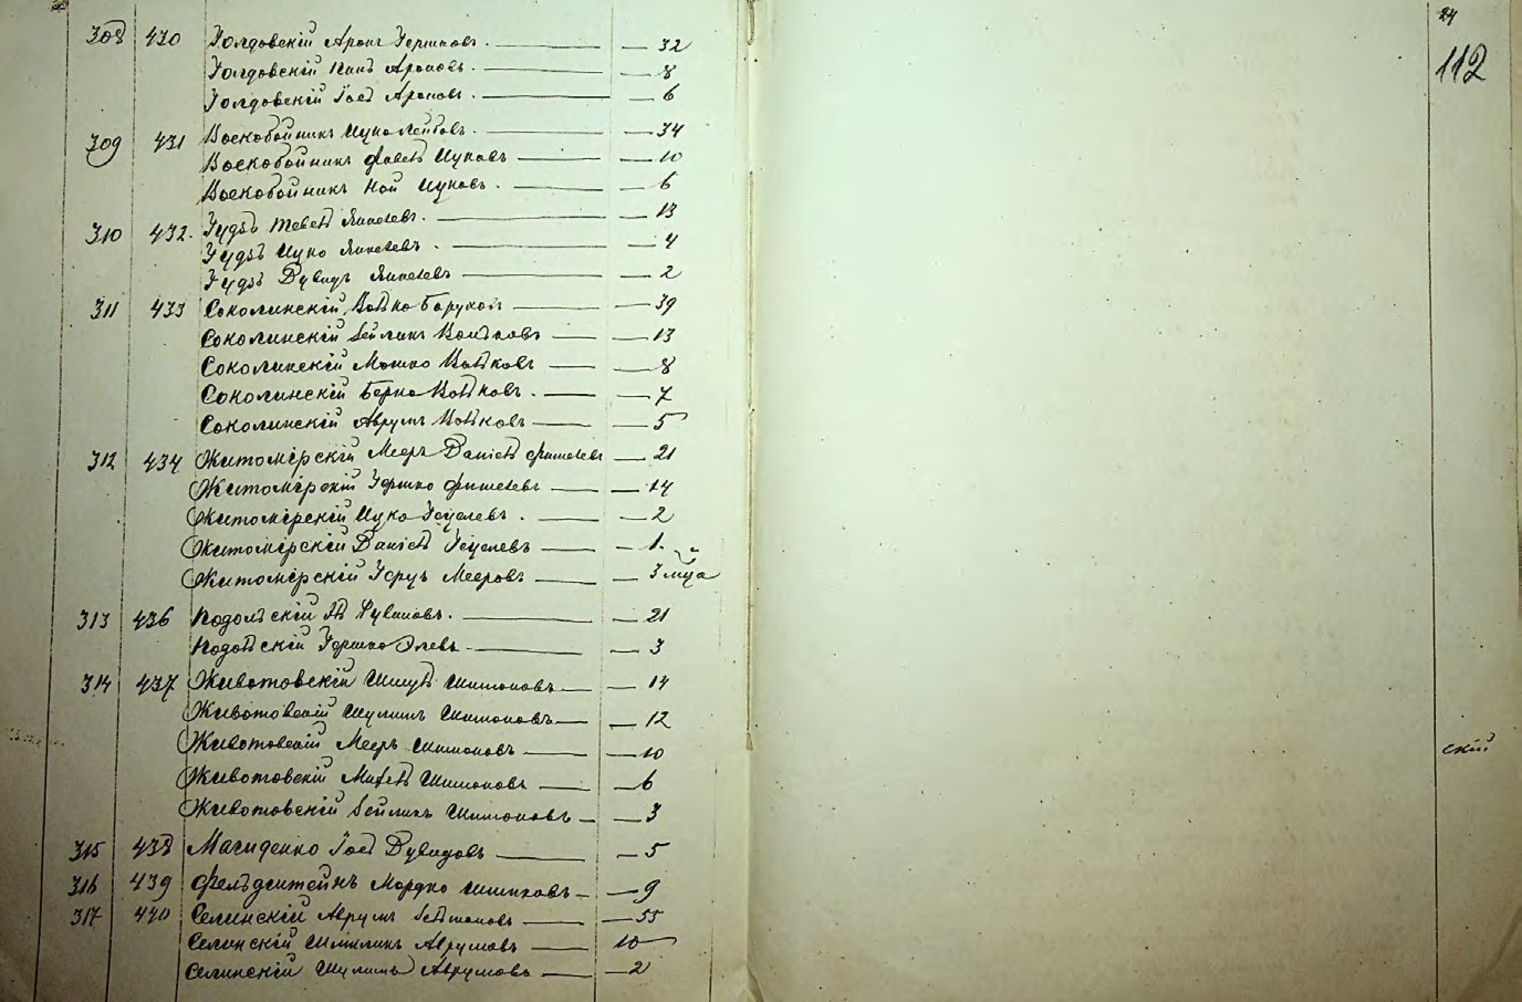 308 430 Голдовскій Аронъ Гершковъ. — 32
Голдовскій Ароновъ. — 8
Голдовскій Іось Ароновъ. — 6
309 431 Воскобойникъ Ицко Лейбовъ. — 34
Воскобойникъ Ицковъ — 10
Воскобойникъ Ной Ицковъ. — 6
310 432. Тевель Янкелевъ. — 13
Ицко Янкелевъ. — 4
Дувидъ Янкелевъ — 2
311 433 Соколинскій Волько Боруховъ — 39
Соколинскій Бейликъ Вольковъ — 13
Соколинскій Мошко Вольковъ — 8
Соколинскій Берко Вольковъ. — 7
Соколинскій Аврумъ Вольковъ — 5
312 434 Житомірскій Мееръ Даніель Фишелевъ — 21
Житомірскій Гершко Фишелевъ — 14
Житомірскій Ицко — 2
Житомірскій Даніель — 1.
Житомірскій Мееровъ — 3 м-ца
313 436 Подольскій Эль Рувиновъ. — 21
Подольскій Гершко Элевъ. — 3
314 437 Животовскій Шмуль Шимоновъ — 14
Животовскій Шулимъ Шимоновъ — 12
Животовскій Мееръ Шимоновъ — 10
Животовскій Шимоновъ — 6
Животовскій Бейликъ Шимоновъ — 3
315 438 Магиденко Іось Дувидовъ — 5
316 439 Фельдштейнъ Мордко — 9
317 440 Селинскій Аврумъ — 55
Селинскій Шмиликъ Аврумовъ — 10
Селинскій Шулимъ Аврумовъ — 2
24
112
скій